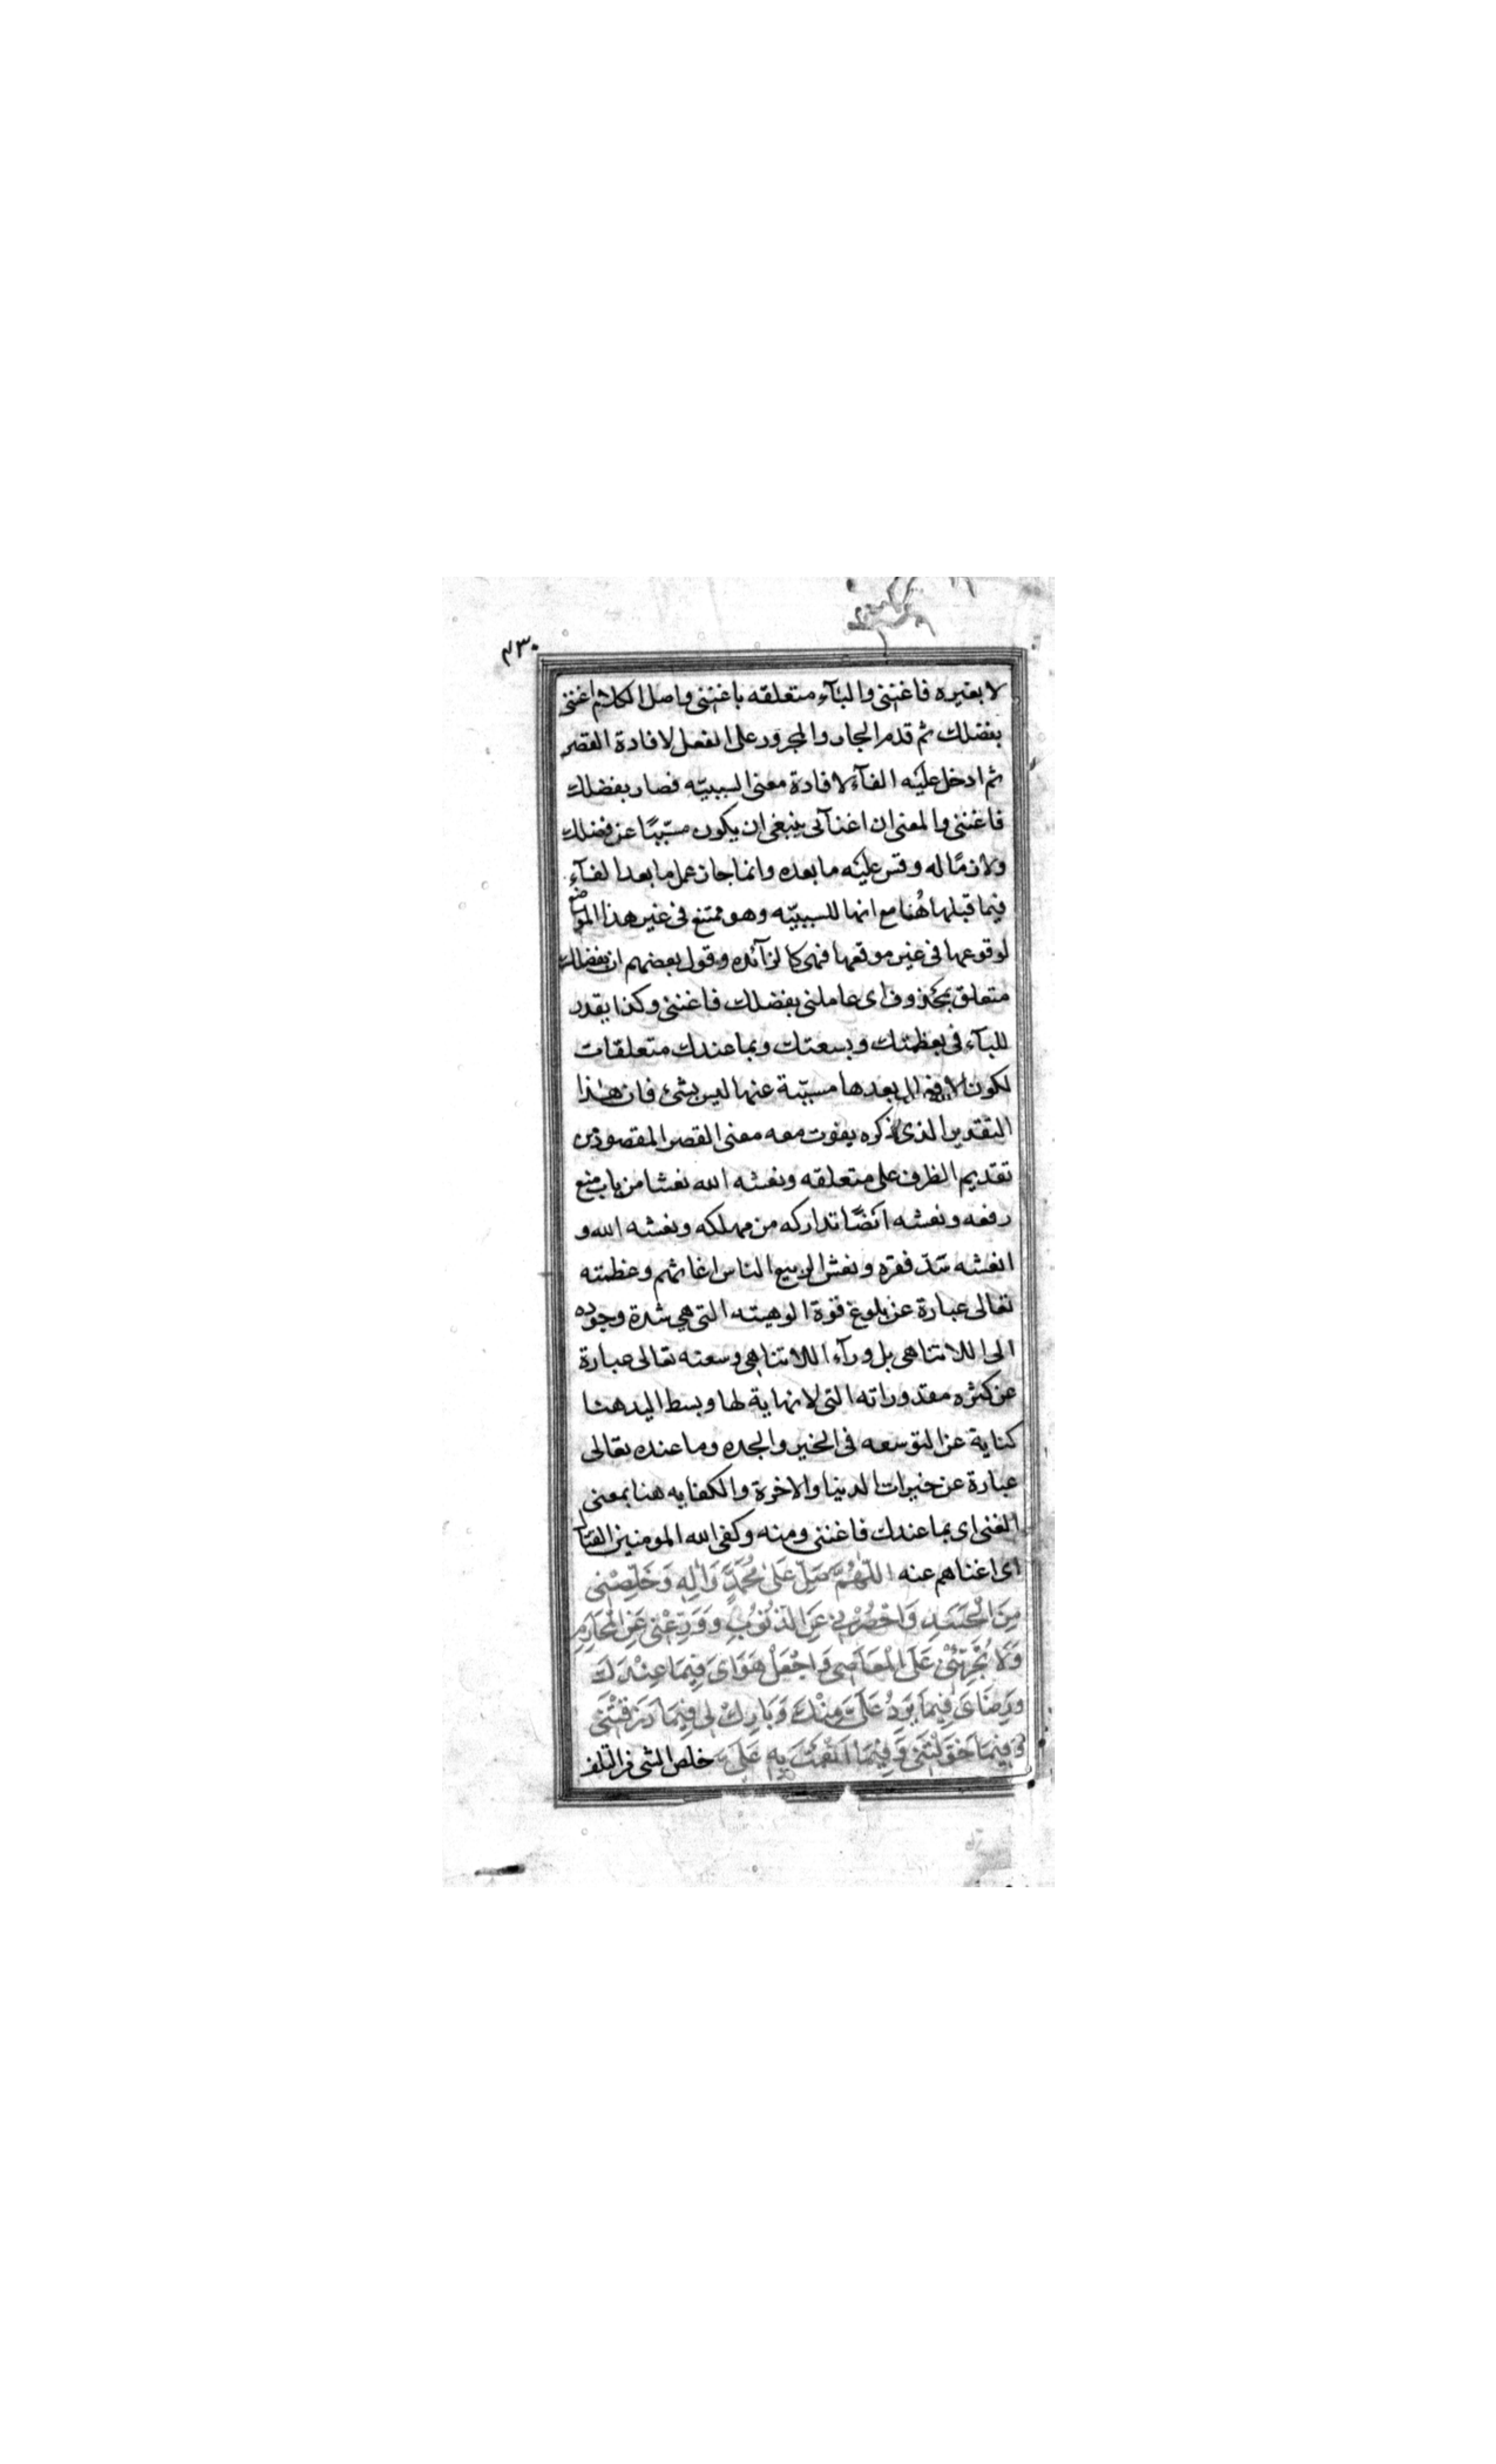 ۴۳۰
لا بغيره فاغننى والبآء متعلقه باغننى واصل الكلام اغننى
بفضلك ثم قدم الجار والمجرور على الفعل لافادة القصر
ثم ادخل عليه الفآء لافادة معنى السببيّه فصار بفضلك
فاغننى والمعنى ان اغنآئى ينبغى ان يكون مسبّبًا عن فضلك
ولازمًا له وقس عليه ما بعده وانما جاز عمل ما بعد الفآء
فيما قبلها هُنا مع انها للسببيّه وهو ممتنع فى غير هذا الموضع
لوقوعها فى غير موقعها فهى كالزآئده وقول بعضهم ان بفضلك
متعلق بمحذوف اى عاملنى بفضلك فاغننى وكذا يقدر
للبآء فى بعظمتك وبسعتك وبما عندك متعلقات
لكون بعدها مسببّة عنها ليس بشئ فان هذا
التقدير الذى ذكره يفوت معه معنى القصر المقصود من
تقديم الظرف على متعلقه ونعشه الله نعشا من باب منع
رفعه ونعشه ايضًا تداركه من مهلكه ونعشه الله و
انعشه سّد فقره ونعش الربيع الناس اغاثهم وعظمته
تعالى عبارة عن بلوغ قوة الوهيته التى هى شدة وجوده
الى اللاتناهى بل ورآء اللاتناهى وسعته تعالى عبارة
عن كثره مقدوراته التى لا نهاية لها وبسط اليد هنا
كناية عن التوسعه فى الخير والجده وما عنده تعالى
عبارة عن خيرات الدنيا والاخرة والكفايه هنا بمعنى
الغنى اى بما عندك فاغننى ومنه وكفى الله المومنين القتال
اى اغناهم عنه اللّهُمَّ صَلِّ عَلىٰ مُحَمَّدٍ وَاٰلِهِ وَخَلِّصْنى
مِنَ الْحَسَدِ وَاحْصُرْنى عَنِ الذُّنُوبِ وَوَرِّعْنى عَنِ الْمَحَارِمِ
وَلَا تُجَرِّئْنى عَلَى الْمَعَاصِى وَاجْعَلْ هَوَاىَ فِيمَا عِنْدَكَ
وَرِضَاىَ فِيمَا يَرِدُ عَلَىَّ مِنْكَ وَبَارِكْ لِى فِيمَا رَزَقْتَنى
وَفِيمَا خَوَّلْتَنى وَفِيمَا اَنْعَمْتَ بِهِ عَلَىَّ خلص الشى من التلف